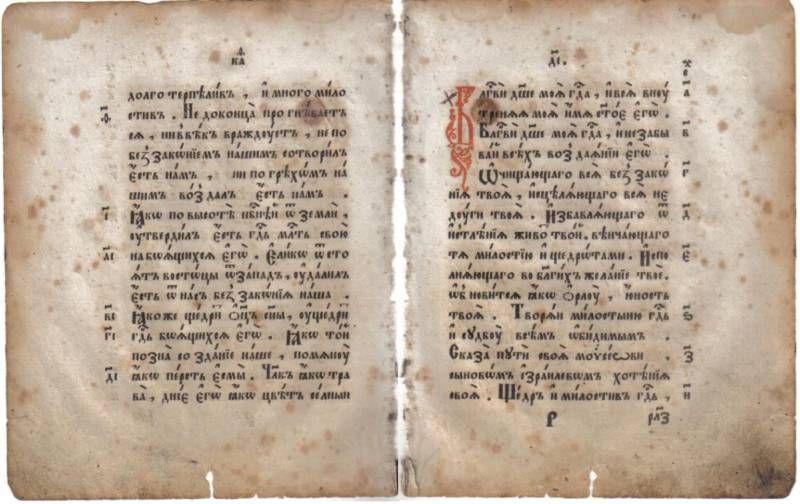 ка
долго терпѣливъ , и҆ много мило
ѳ҃і стивъ . Не доконца̀ про гнѣваетъ
сѧ , ни ввѣкъ враждоуетъ , не по
без̾ зако́нїемъ нашимъ сотворилъ
є҆стъ намъ , ни по грѣхо́мъ на
шимъ во́з̾ далъ є҆стъ намъ .
і҃ Ꙗ҆кѡ по высотѣ нб҃нѣй ѿ земли̇ ,
оутвердилъ є҆сть гд҃ь мл҃ть свою
а҃і на боѧщихсѧ є҆гѡ̀ . Є҆ликѡ ѿсто
ѧтъ востоцы ѿ западъ , оудалилъ
є҆сть ѿ насъ без̾ зако́нїѧ наша .
в҃і Ꙗ҆ко же щедритъ о҆ц҃ъ сн҃ы , оу҆ще́дри
г҃і гд҃ь боѧщихсѧ є҆гѡ̀ . Ꙗ҆кѡ то́й
позна созда́нїе наше , помѧноу̀
д҃і ꙗ҆кѡ персть є҆смы̀ . Чл҃къ ꙗ҆кѡ тра
ва̀ , днїе є҆гѡ̀ ꙗ҆кѡ цвѣтъ се́лныи
Бл҃гв҃и дш҃е моѧ̀ гд҃а , и҆всѧ вноу́ а҃
треннѧѧ моѧ̀ и҆мѧ ст҃о́е є҆гѡ̀ .
Бл҃гв҃и дш҃е моѧ̀ гд҃а , и҆незабы в҃
ва́й всѣхъ воз̾даѧнїй є҆гѡ̀ .
Ѡ҆чища́ющаго всѧ без̾ зако г҃
нїѧ твоѧ̀ , и҆сцелѧ́ющаго всѧ̀ не
доу́ги твоѧ̀ . И҆збавлѧ́ющаго ѿ д҃
и҆стлѣ́нїѧ живо́тъ тво́й . вѣнча́ющаго
тѧ милостїю и҆ щедро́тами . И҆спо є҃
лнѧ́ющаго во бл҃гихъ желанїе твое .
ѡ҆бновитсѧ ꙗ҆кѡ о҆рлоу̀ , ю҆ность
твоѧ̀ . Творѧ́й милостыню гд҃ь ѕ҃
и҆ судбоу̀ всѣмъ ѡ҆бидимымъ .
Сказа̀ пути̇ своѧ̀ моѵсеѡви . з҃
сыновѡмъ і҆зраилевомъ хотѣнїѧ
своѧ̀ . Ще́дръ и҆ милостивъ гд҃ь , и҃
р рл҃з